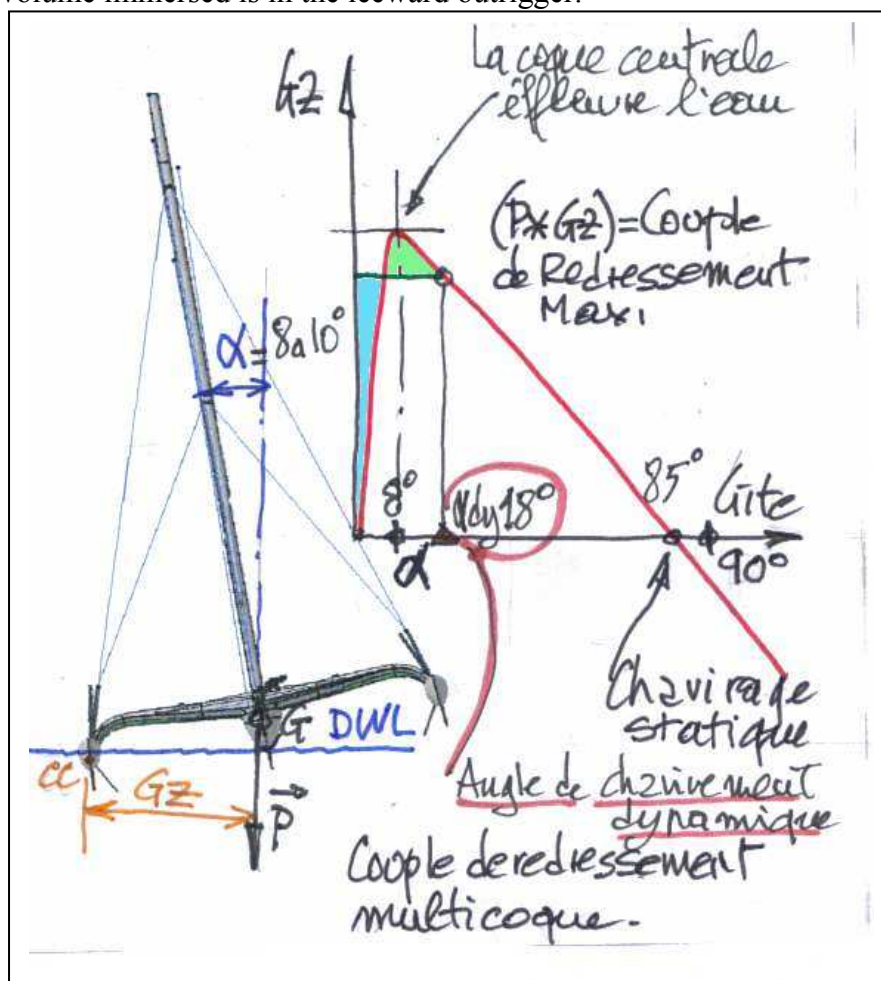 volume immersed is in the leeward outrigger.
La coque centrale
éffleure l'eau
GZ
(P*GZ)=Couple
de Redressement
Maxi
α=8a10°
8°
αdy18°
85°
Gîte
α
90°
Chavirage
statique
G
DWL
CC
GZ
P
Angle de chavirement
dynamique
Couple de redressement
multicoque.